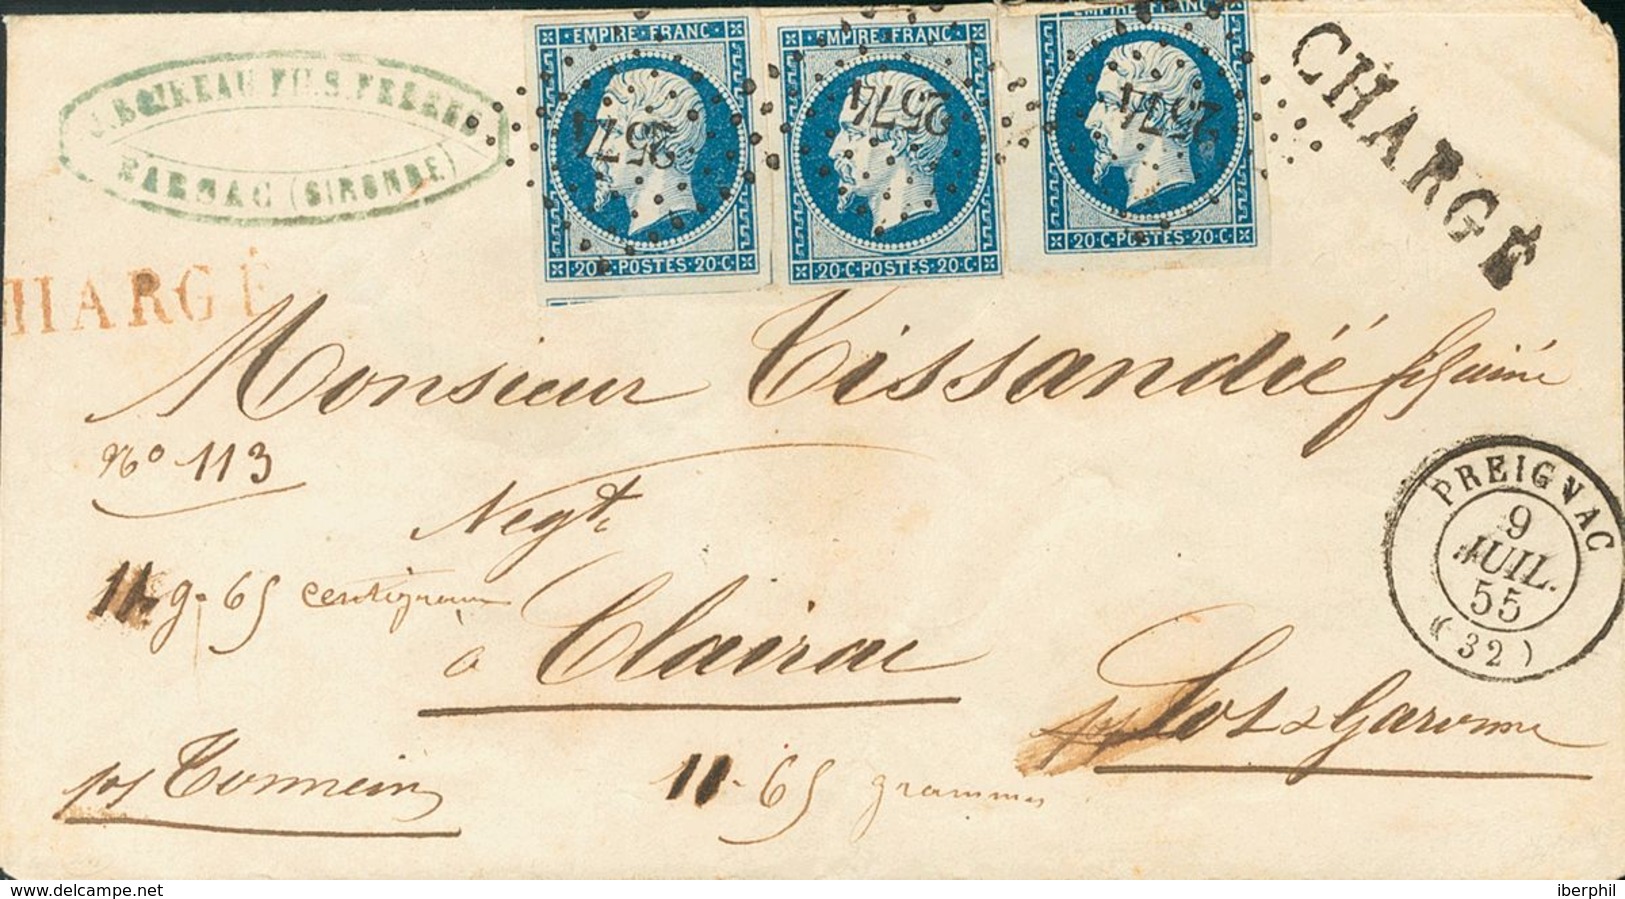 EMPIRE FRANC
EMPIRE FRANC
EMPIRE FRANC
2574
2574
2574
20·C·POSTES·20·C·
20·C·POSTES·20·C·
20·C·POSTES·20·C·
J. BOIREAU FILS FRERES
BARSAC (GIRONDE.)
CHARGÉ
HARGÉ
Monsieur Tissandié
No 113
Negt
11 g. 65 centigrammes
à Clairac
ps Tonneins
Lot & Garonne
11 - 65 grammes
PREIGNAC
9
JUIL.
55
(32)
www.delcampe.net
iberphil